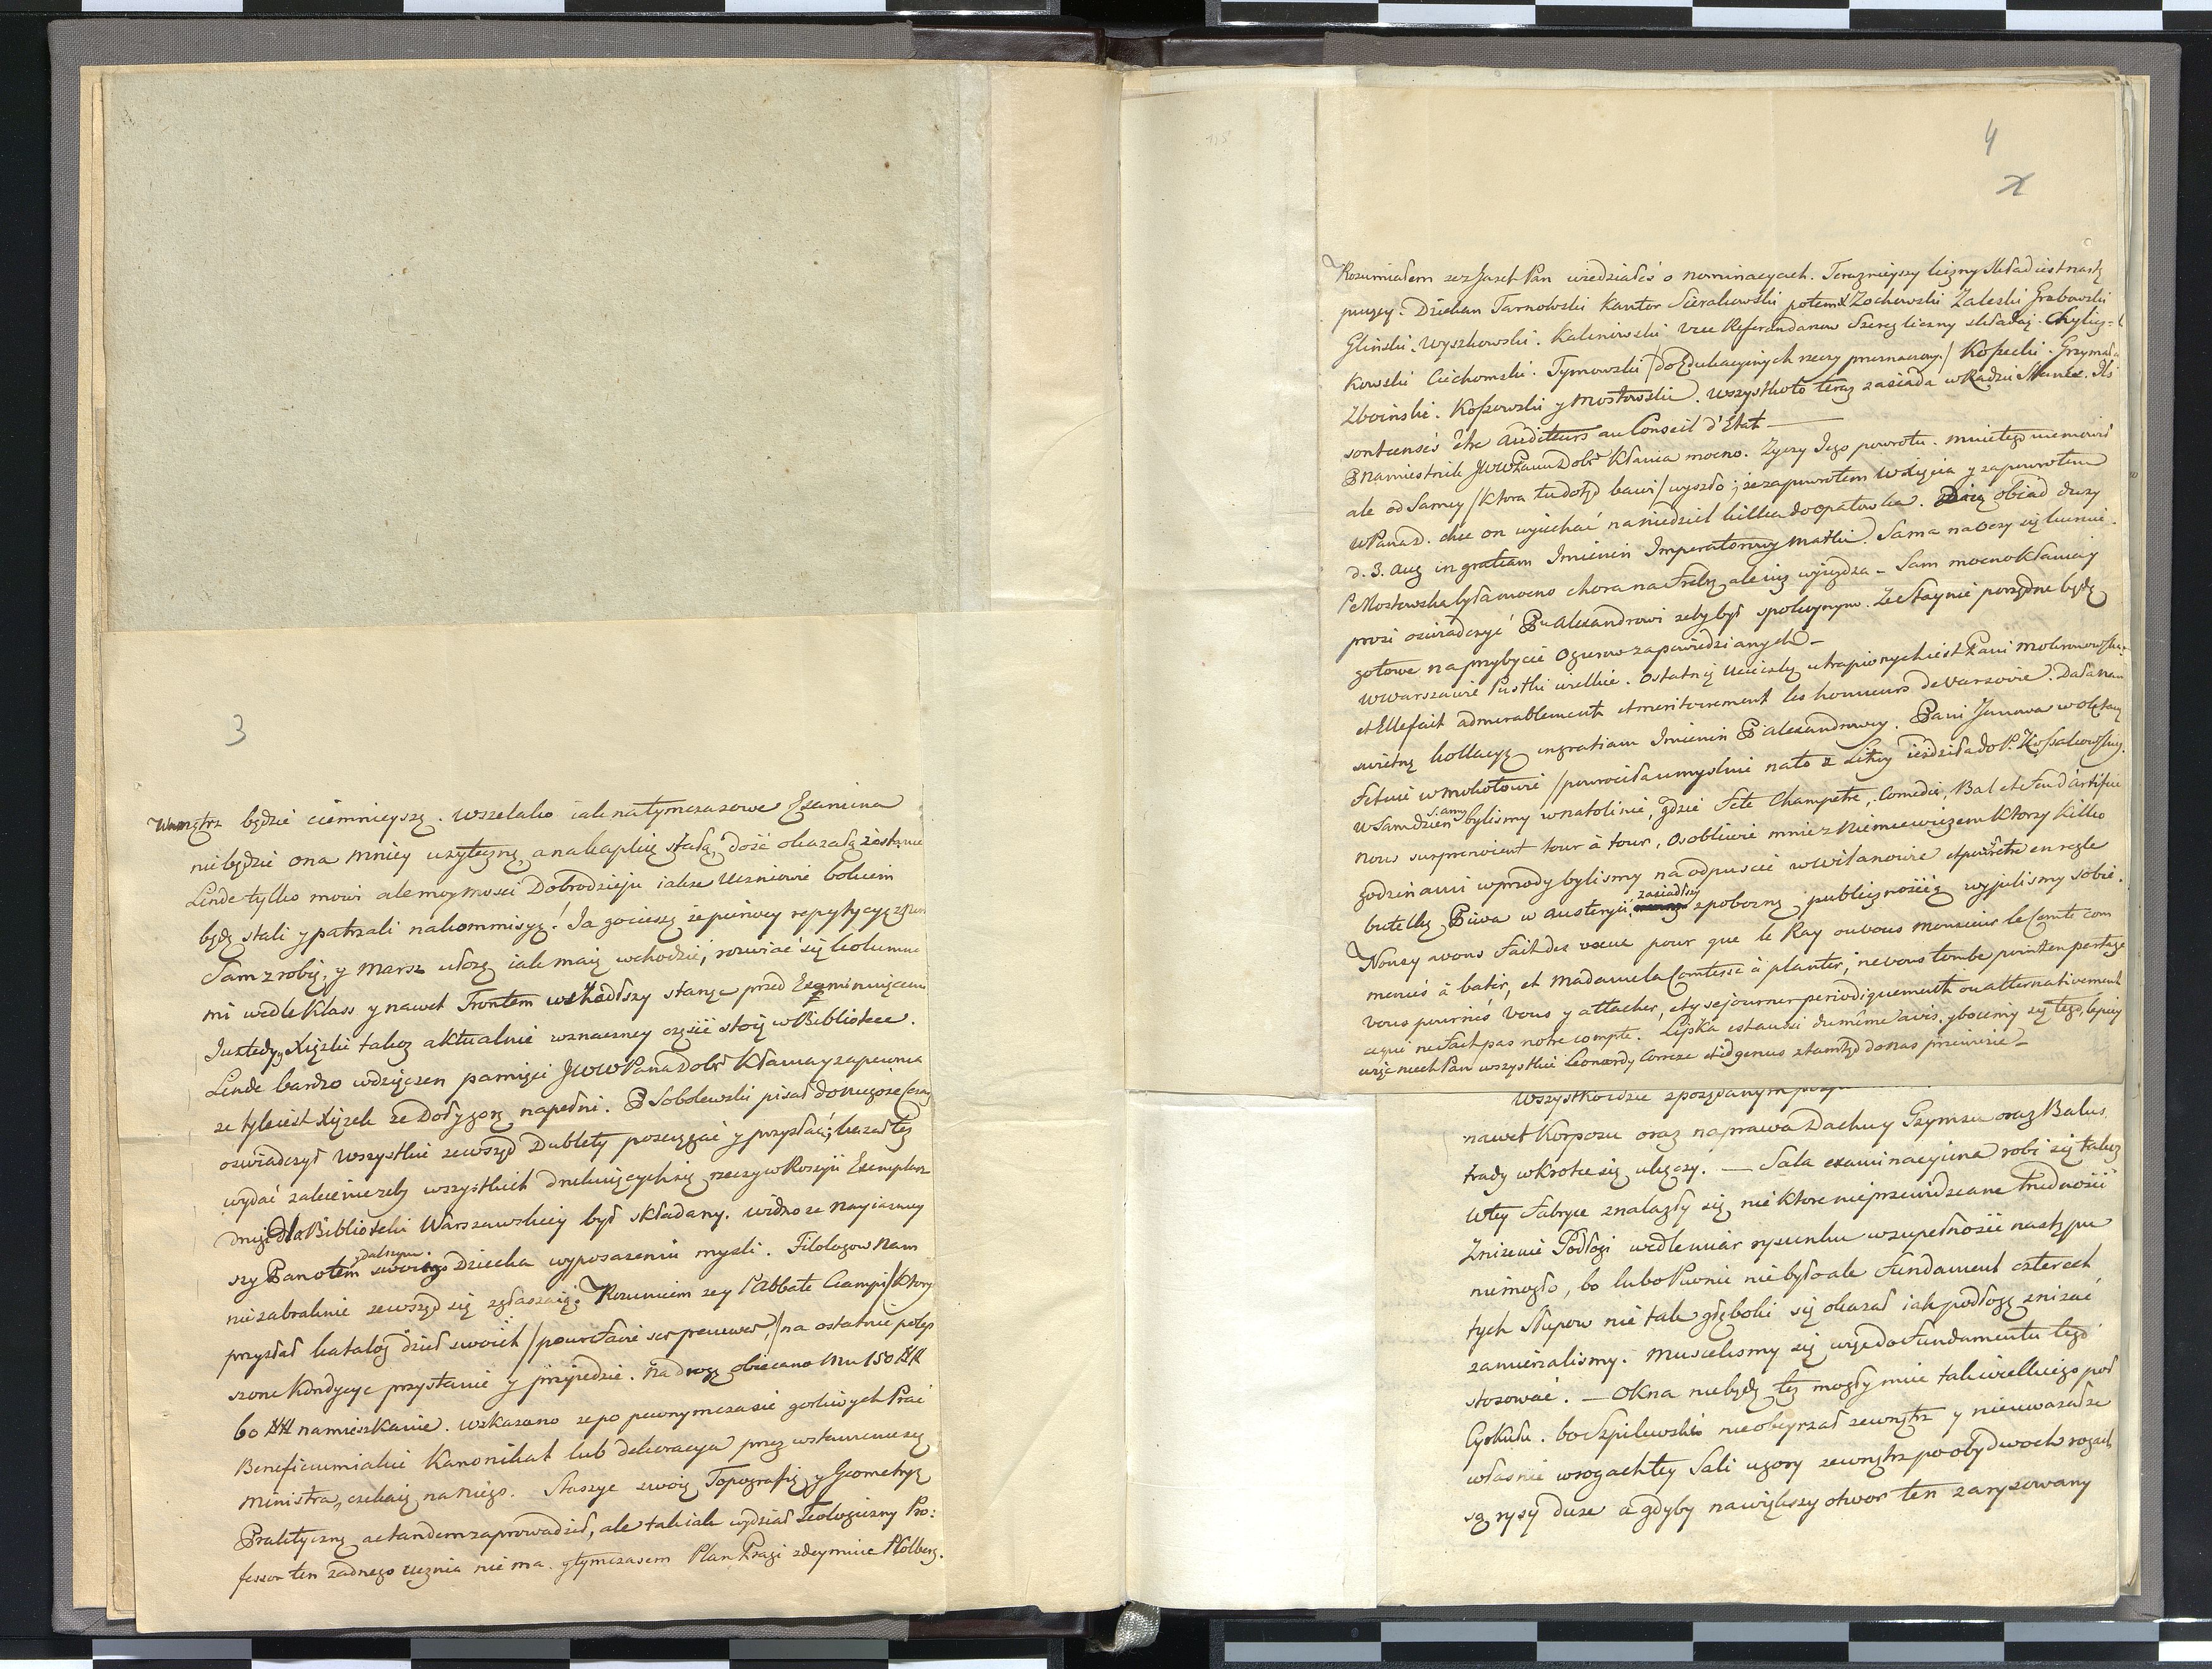 3
Wewnątrz będzie ciemnieyszą. Wszelako iak natymczasowe Examina
niebędzie ona mniey użyteczną, a nakaplicę stałą, dość okazałą zostanie
Linde tylko mowi ale moy mosci Dobrodzieju iakże Uczniowie bokiem
będą stali y patrzali nakommisyę! Ja gocieszę że pierwey repytycyę z Nim
Sam zrobię, y Marsz ułożę iak maią wchodzić, rozwiać się kolumna
mi wedle Klass y nawet Frontem wszedłszy stanąc przed Examinuiącemi
Juztedy Xiążki takoż aktualnie wznaczney części stoią w Bibliotece.
Linde bardzo wdzięczen pamięci JWW Pana Dobr Kłania y zapewnia
ze tyleiest Xiążek ze Dołyyorę napełni. P Sobolewski pisał do niego że Cesarz
oswiadczył Wszystkie zewsząd Dublety posciągać y przysłać; kazał też
wydać zalecenie zeby wszystkich drukuiącychsię rzeczy w Rossyi Exemplarz
drugi dla Biblioteki Warszawskiey był składany. widno ze Nayiasniey
szy Pan otem swoiego dalszym Dziecka wyposazeniu mysli. Filologow Nam
niezabraknie zewsząd się zgłaszaią. Rozumiem ze y l'Abbate Ciampi / ktory
przysłał katalog dzieł swoich / pour faire ses preuves, / na ostatnie polep
szone Kondycye przystanie y przyiedzie. Na drogę obiecano Mu 150 ##
60 ## namieszkanie. Wskazano ze po pewnym czasie gorliwych Prac
Beneficium iakie Kanonikat lub dekoracya przez wstawieniesię
Ministra, czekaią na Niego. Staszyc swoią Topografię y Geometryę
Praktyczną ac tandem zaprowadził, ale tak iak wydział Teologiczny Pro:
fessor ten zadnego ucznia nie ma. y tymczasem Plan Pragi zdeymuie Kolberg.
4
Rozumiałem zez Gazet Pan wiedziałeś o nominacyach. Teraznieyszy liczny Skład iest nastę
puiący. Dziekan Tarnowski Kantor Sierakowski potem Zochowski Zaleski Grabowski
Gliński. Wyszkowski. Kalinowski Vice Referendarzow Szereg liczny składaią. Chylicz=
kowski Ciechomski. Tymowski / do Edukacyinych rzeczy przeznaczony. / Kosecki. Grzymała
Zboinski. Kossowski y Mostowski. Wszystkoto teraz zasiada w Radzie Stanu. Ils
sont censés être Auditeurs au Conseil d'Etat —
P Namiestnik JWW Panu Dobr Kłania mocno. Zyczy Jego powrotu. mnie tego nie mowił
ale od Samey / ktora tu dotąd bawi / wyszło; że zapowrotem Xięcia y zapowrotem
W Pana D. chce on wyiechać na niedziel kilka do Opatowka. Daią obiad duzy
d. 3. Aug in gratiam Imienin Imperatorowy Matki. Sama na Oczy się leczy.
P Mostowska była mocno chora na Febrę ale iuz wyiezdza – Sam mocno kłania y
prosi oswiadczyć Pu Alexandrowi zeby był spokoynym. Ze Staynie porządne będą
gotowe na przybycie Ogierow zapowiedzianych –
W Warszawie Pustki wielkie. Ostatnią Ucieczką utrapionych iest Pani Mokronowska
et Elle fait admirablement et meritoirement les honneurs de Varsovie. Dała nam
swietną kollacyę in gratiam Imienin P Alexandrowey. Pani Janowa w ołtarz
Fetuie w Mokotowie / powrociła umyslnie na to z Litwy iezdziła do P. Kossakowskiey.
W Sam dzień S. Anny bylismy w Natolinie, gdzie Fete Champetre, Comedie, Bal et Feu d'artifice
nous surprenoient tour à tour. Osobliwie mnie z Niemcewiczem ktorzy kilko
godzinami wprzody bylismy na odpuscie w Wilanowie et pour être en regle
butelkę Piwa w Austeryi, zasiadłszy z pobozną publicznością wypilismy sobie.
Nous y avons fait des voeux pour que le Ray ou vous Monsieur le Comte com
mencés à batir, et Madame la Comtesse à planter, ne vous tombe point en partage
vous pourriés Vous y attacher, et y sejourner periodiquement ou alternativement
ce qui ne fait pas notre compte. Lipska est aussi du même avis. y boiemy się tego, lepiey
więc niech Pan wszystkie Leonardy Correze et id genus ztamtąd do nas przeniesie –
Wszystko idzie z pożądanym
nawet Korpusu oraz naprawa Dachu y Gzymsu oraz Balus
trady wkrotce się ukączy. — Sala examinacyina robi się takoż
W tey Fabryce znalazły się niektore nieprzewidziane Trudności
Znizenie Podłogi wedle miar rysunku wzupełności nastąpić
niemogło, bo lubo Piwnic nie było ale Fundament czterech
tych Słupow nie tak głęboki się okazał iak podłogę znizać
zamierzalismy. Musielismy się więc do Fundamentu tego
stosować. — Okna niebędą też mogły mieć tak wielkiego poł
Cyrkułu. bo Szpilowski nieobeyrzał zewnątrz y nieuwazał ze
własnie w rogach tey Sali u gory zewnątrz po obydwoch rogach
są rysy duze a gdyby nawiększy otwor ten zarysowany